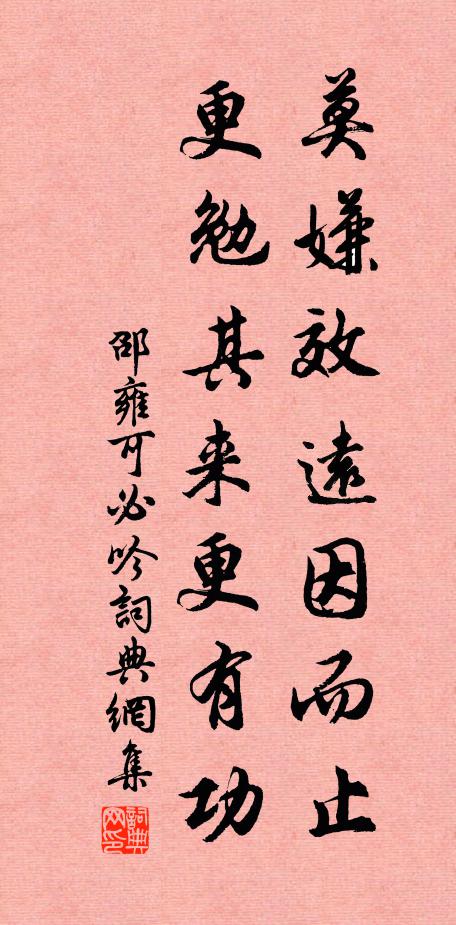 莫嫌效遠因而止
更勉其来更有功
邵雍可必吟詞典網集
詞典
网印